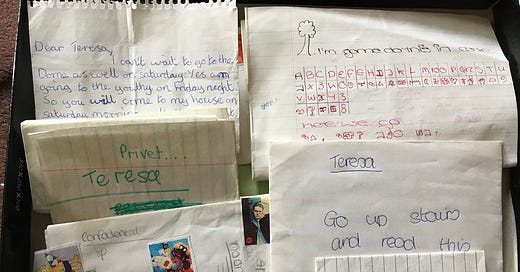 Dear Teresa,
I can't wait to go to the
Dome as well on saturday. Yes am
going to the youthy on Friday night.
So you will come to my house on
saturday morning
I'm gonna do this in code
A B C D E F G H I J K L M N O P Q R S T U
V W X Y Z
here we go
Privet...
Teresa
Confidental
Teresa
Go up stairs
and read this